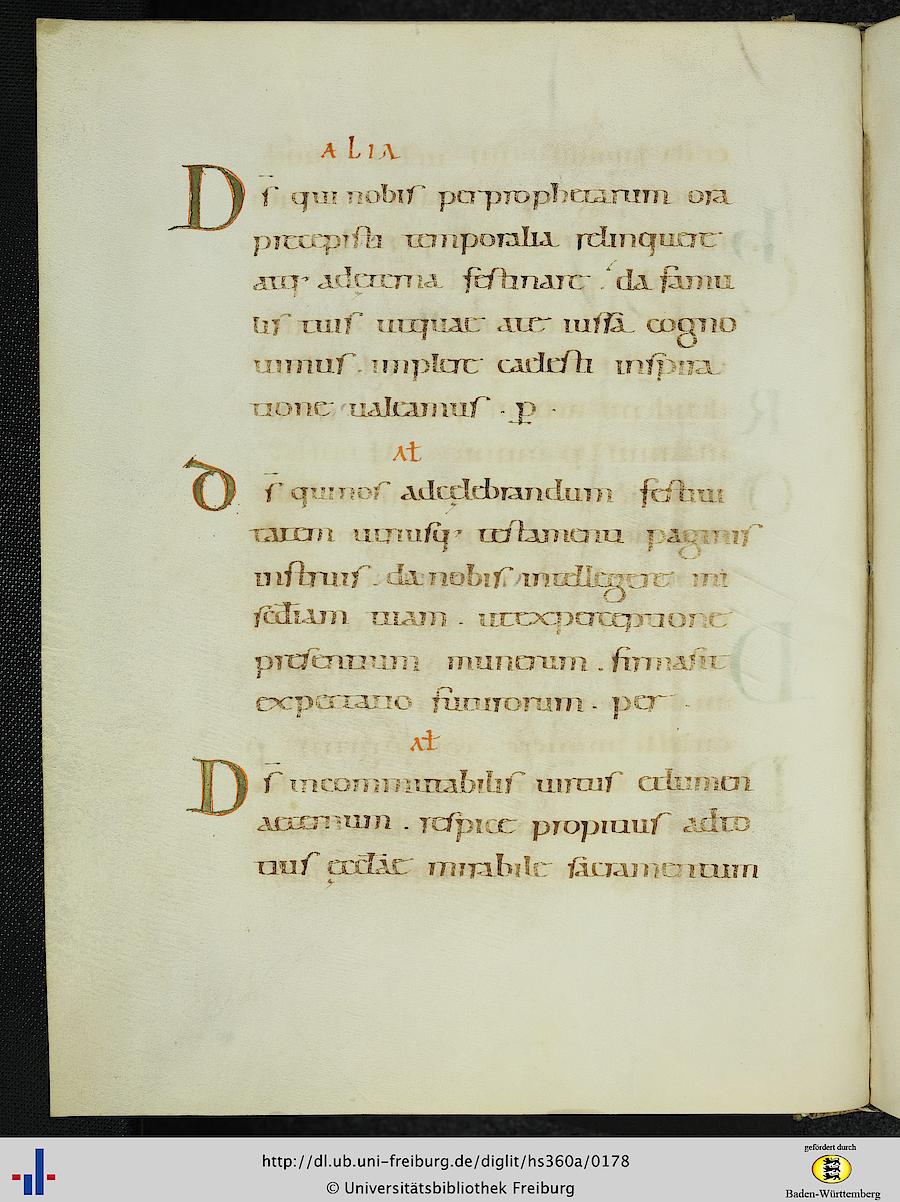 ALIA
D̄s qui nobis per prophetarum ora
precepisti temporalia relinquere
atq; ad eterna festinare . da famu
lis tuis ut que a te iussa cogno
uimus . implere caelesti inspira
tione ualeamus . p .
AŁ
D̄s qui nos ad celebrandum festiui
tatem utriusq; testamenti paginis
instruis . da nobis intellegere mi
sediam tuam . ut ex perceptione
presentium munerum . firma sit
expectatio futurorum . per .
AŁ
D̄s incommutabilis uirtus et lumen
aeternum . respice propitius ad to
tius ęcclae mirabile sacramentum
http://dl.ub.uni-freiburg.de/diglit/hs360a/0178
© Universitätsbibliothek Freiburg
gefördert durch
Baden-Württemberg